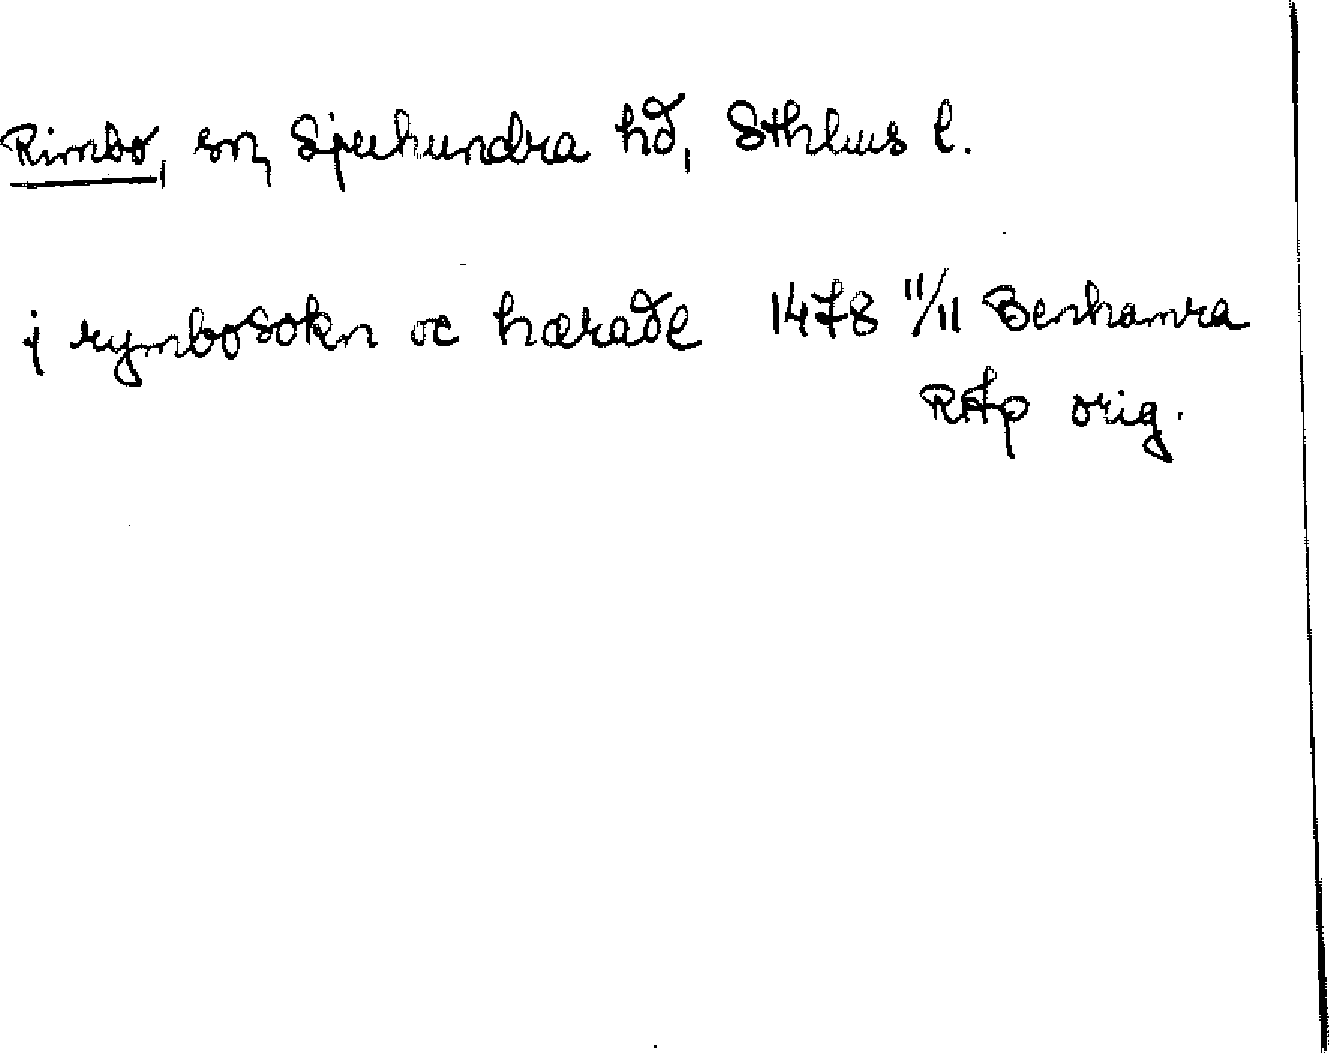 Rimbo, sn, Sjuhundra hd, Sthlms l.
j rymbosokn oc hærade 1478 11/11 Benhamra
RAp orig.